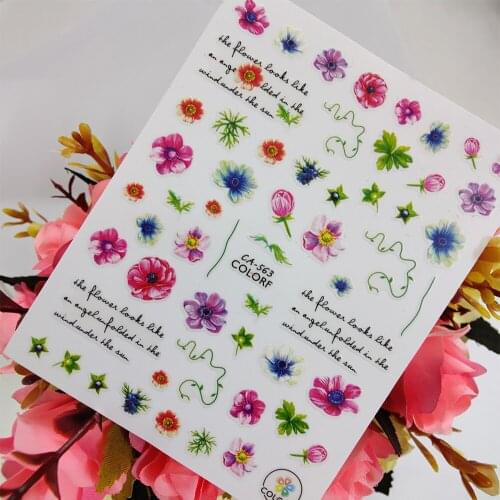 the flower looks like
an angel unfolded in the
wind under the sun
CA-563
COLORF
the flower looks like
an angel.unfolded in the
wind.under the sun
the flower looks like
an angel.unfolded in the
wind.under the sun